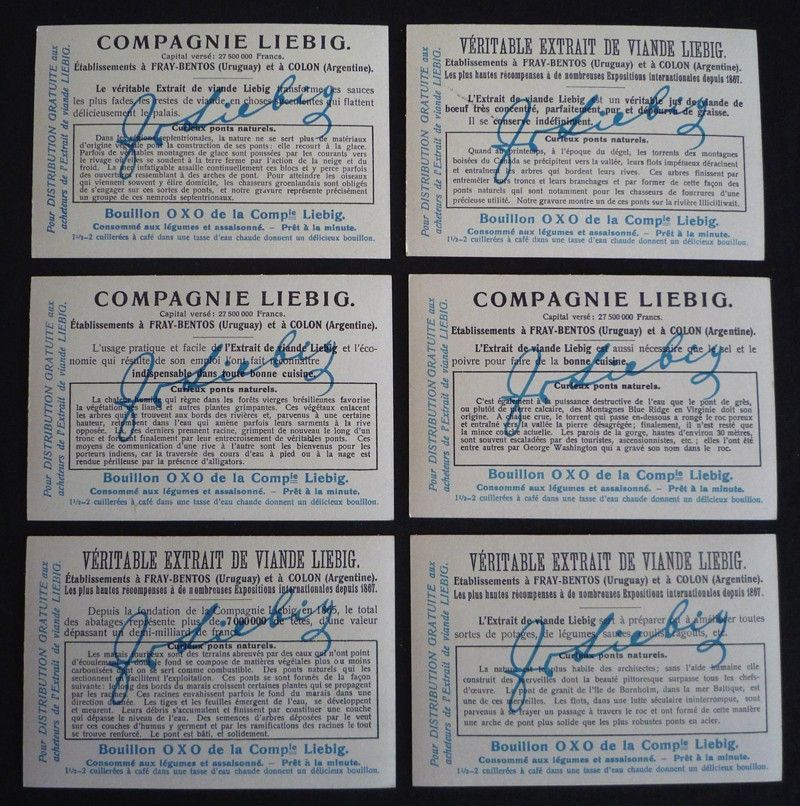 Pour DISTRIBUTION GRATUITE aux
acheteurs de l'Extrait de viande LIEBIG.
COMPAGNIE LIEBIG.
Capital versé: 27 500 000 Francs.
Établissements à FRAY-BENTOS (Uruguay) et à COLON (Argentine).
Le véritable Extrait de viande Liebig transforme les sauces
les plus fades, les restes de viande, en choses succulentes qui flattent
délicieusement le palais.
J. v Liebig
Curieux ponts naturels.
Dans les régions septentrionales, la nature ne se sert plus de matériaux
d'origine végétale pour la construction de ses ponts: elle recourt à la glace.
Parfois de véritables montagnes de glace sont poussées par les courants vers
le rivage où elles se soudent à la terre ferme par l'action de la neige et du
froid. Le flot infatigable assaille continuellement ces blocs et y perce parfois
des ouvertures ressemblant à des arches de pont. Pour atteindre les oiseaux
qui viennent souvent y élire domicile, les chasseurs groenlandais sont obligés
de s'engager sur ces sortes de ponts, et notre gravure représente précisément
un groupe de ces nemrods septentrionaux.
Bouillon OXO de la Compie Liebig.
Consommé aux légumes et assaisonné. – Prêt à la minute.
1½–2 cuillerées à café dans une tasse d'eau chaude donnent un délicieux bouillon.
Pour DISTRIBUTION GRATUITE aux
acheteurs de l'Extrait de viande LIEBIG.
VÉRITABLE EXTRAIT DE VIANDE LIEBIG.
Établissements à FRAY-BENTOS (Uruguay) et à COLON (Argentine).
Les plus hautes récompenses à de nombreuses Expositions internationales depuis 1867.
L'Extrait de viande Liebig est un véritable jus de viande de
bœuf très concentré, parfaitement pur et dépourvu de graisse.
Il se conserve indéfiniment.
J. v Liebig
Curieux ponts naturels.
Quand au printemps, à l'époque du dégel, les torrents des montagnes
boisées du Canada se précipitent vers la vallée, leurs flots impétueux déracinent
et entraînent les arbres qui bordent leurs rives. Ces arbres finissent par
entremêler leurs troncs et leurs branchages et par former de cette façon des
ponts naturels qui sont notamment pour les chasseurs de fourrures d'une
précieuse utilité. Notre gravure montre un de ces ponts sur la rivière Illicilliwait.
Bouillon OXO de la Compie Liebig.
Consommé aux légumes et assaisonné. – Prêt à la minute.
1½–2 cuillerées à café dans une tasse d'eau chaude donnent un délicieux bouillon.
Pour DISTRIBUTION GRATUITE aux
acheteurs de l'Extrait de viande LIEBIG.
COMPAGNIE LIEBIG.
Capital versé: 27 500 000 Francs.
Établissements à FRAY-BENTOS (Uruguay) et à COLON (Argentine).
L'usage pratique et facile de l'Extrait de viande Liebig et l'éco-
nomie qui résulte de son emploi l'ont fait reconnaître
indispensable dans toute bonne cuisine.
J. v Liebig
Curieux ponts naturels.
La chaleur qui règne dans les forêts vierges brésiliennes favorise
la végétation et autres plantes grimpantes. Ces végétaux enlacent
les arbres qui se trouvent aux bords des rivières et, parvenus à une certaine
hauteur, rejettent dans l'eau qui amène parfois leurs sarments à la rive
opposée. Ces derniers prennent racine, grimpent de nouveau le long d'un
tronc et forment finalement par leur entrecroisement de véritables ponts. Ces
moyens de communication d'une rive à l'autre sont les bienvenus pour les
porteurs indiens, car la traversée des cours d'eau à pied ou à la nage est
rendue périlleuse par la présence d'alligators.
Bouillon OXO de la Compie Liebig.
Consommé aux légumes et assaisonné. – Prêt à la minute.
1½–2 cuillerées à café dans une tasse d'eau chaude donnent un délicieux bouillon.
Pour DISTRIBUTION GRATUITE aux
acheteurs de l'Extrait de viande LIEBIG.
COMPAGNIE LIEBIG.
Capital versé: 27 500 000 Francs.
Établissements à FRAY-BENTOS (Uruguay) et à COLON (Argentine).
L'Extrait de viande Liebig est aussi nécessaire que le sel et le
poivre pour faire de la bonne cuisine.
J. v Liebig
Curieux ponts naturels.
C'est également à la puissance destructive de l'eau que le pont de grès,
ou plutôt de pierre calcaire, des Montagnes Blue Ridge en Virginie doit son
origine. A chaque crue, le torrent qui passe en-dessous a rongé le roc poreux
et entraîné vers la vallée la pierre désagrégée; finalement, il n'est resté que
la mince arche actuelle. Les parois de la gorge, hautes d'environ 30 mètres,
sont souvent escaladées par des touristes, ascensionnistes, etc.; elles l'ont été
entre autres par George Washington qui a gravé son nom dans le roc.
Bouillon OXO de la Compie Liebig.
Consommé aux légumes et assaisonné. – Prêt à la minute.
1½–2 cuillerées à café dans une tasse d'eau chaude donnent un délicieux bouillon.
Pour DISTRIBUTION GRATUITE aux
acheteurs de l'Extrait de viande LIEBIG.
VÉRITABLE EXTRAIT DE VIANDE LIEBIG.
Établissements à FRAY-BENTOS (Uruguay) et à COLON (Argentine).
Les plus hautes récompenses à de nombreuses Expositions internationales depuis 1867.
Depuis la fondation de la Compagnie Liebig en 1865, le total
des abatages représente plus de 7000000 de têtes, d'une valeur
dépassant un demi-milliard de francs.
J. v Liebig
Curieux ponts naturels.
Les marais sont des terrains abreuvés par des eaux qui n'ont point
d'écoulement; le fond se compose de matières végétales plus ou moins
carbonisées et sert comme combustible. Des ponts naturels qui les
sectionnent en facilitent l'exploitation. Ces ponts sont formés de la façon
suivante: les bords du marais croissent certaines plantes qui se propagent
par les racines. Ces racines envahissent parfois le fond du marais dans une
direction. Les tiges et les feuilles émergent de l'eau, se développent
et meurent. Leurs débris s'accumulent et finissent par constituer une couche
qui dépasse le niveau de l'eau. Des semences d'arbres déposées par le vent
sur ces couches d'humus y germent et par les ramifications des racines le tout
se trouve renforcé. Le pont est bâti, et solidement.
Bouillon OXO de la Compie Liebig.
1½–2 cuillerées à café dans une tasse d'eau chaude donnent un délicieux bouillon.
Pour DISTRIBUTION GRATUITE aux
acheteurs de l'Extrait de viande LIEBIG.
VÉRITABLE EXTRAIT DE VIANDE LIEBIG.
Établissements à FRAY-BENTOS (Uruguay) et à COLON (Argentine).
Les plus hautes récompenses à de nombreuses Expositions internationales depuis 1867.
L'Extrait de viande Liebig sert à préparer et à améliorer toutes
sortes de potages, de légumes, sauces, coulis, ragoûts, etc.
J. v Liebig
Curieux ponts naturels.
La nature est le plus habile des architectes; sans l'aide humaine elle
construit des merveilles dont la beauté pittoresque surpasse tous les chefs-
d'œuvre. de granit de l'Ile de Bornholm, dans la mer Baltique, est
une de ces merveilles. Les flots, dans une lutte séculaire ininterrompue, sont
parvenus à se frayer un passage à travers le roc et ont formé de cette manière
une arche de pont plus solide que les plus robustes ponts en acier.
Bouillon OXO de la Compie Liebig.
1½–2 cuillerées à café dans une tasse d'eau chaude donnent un délicieux bouillon.